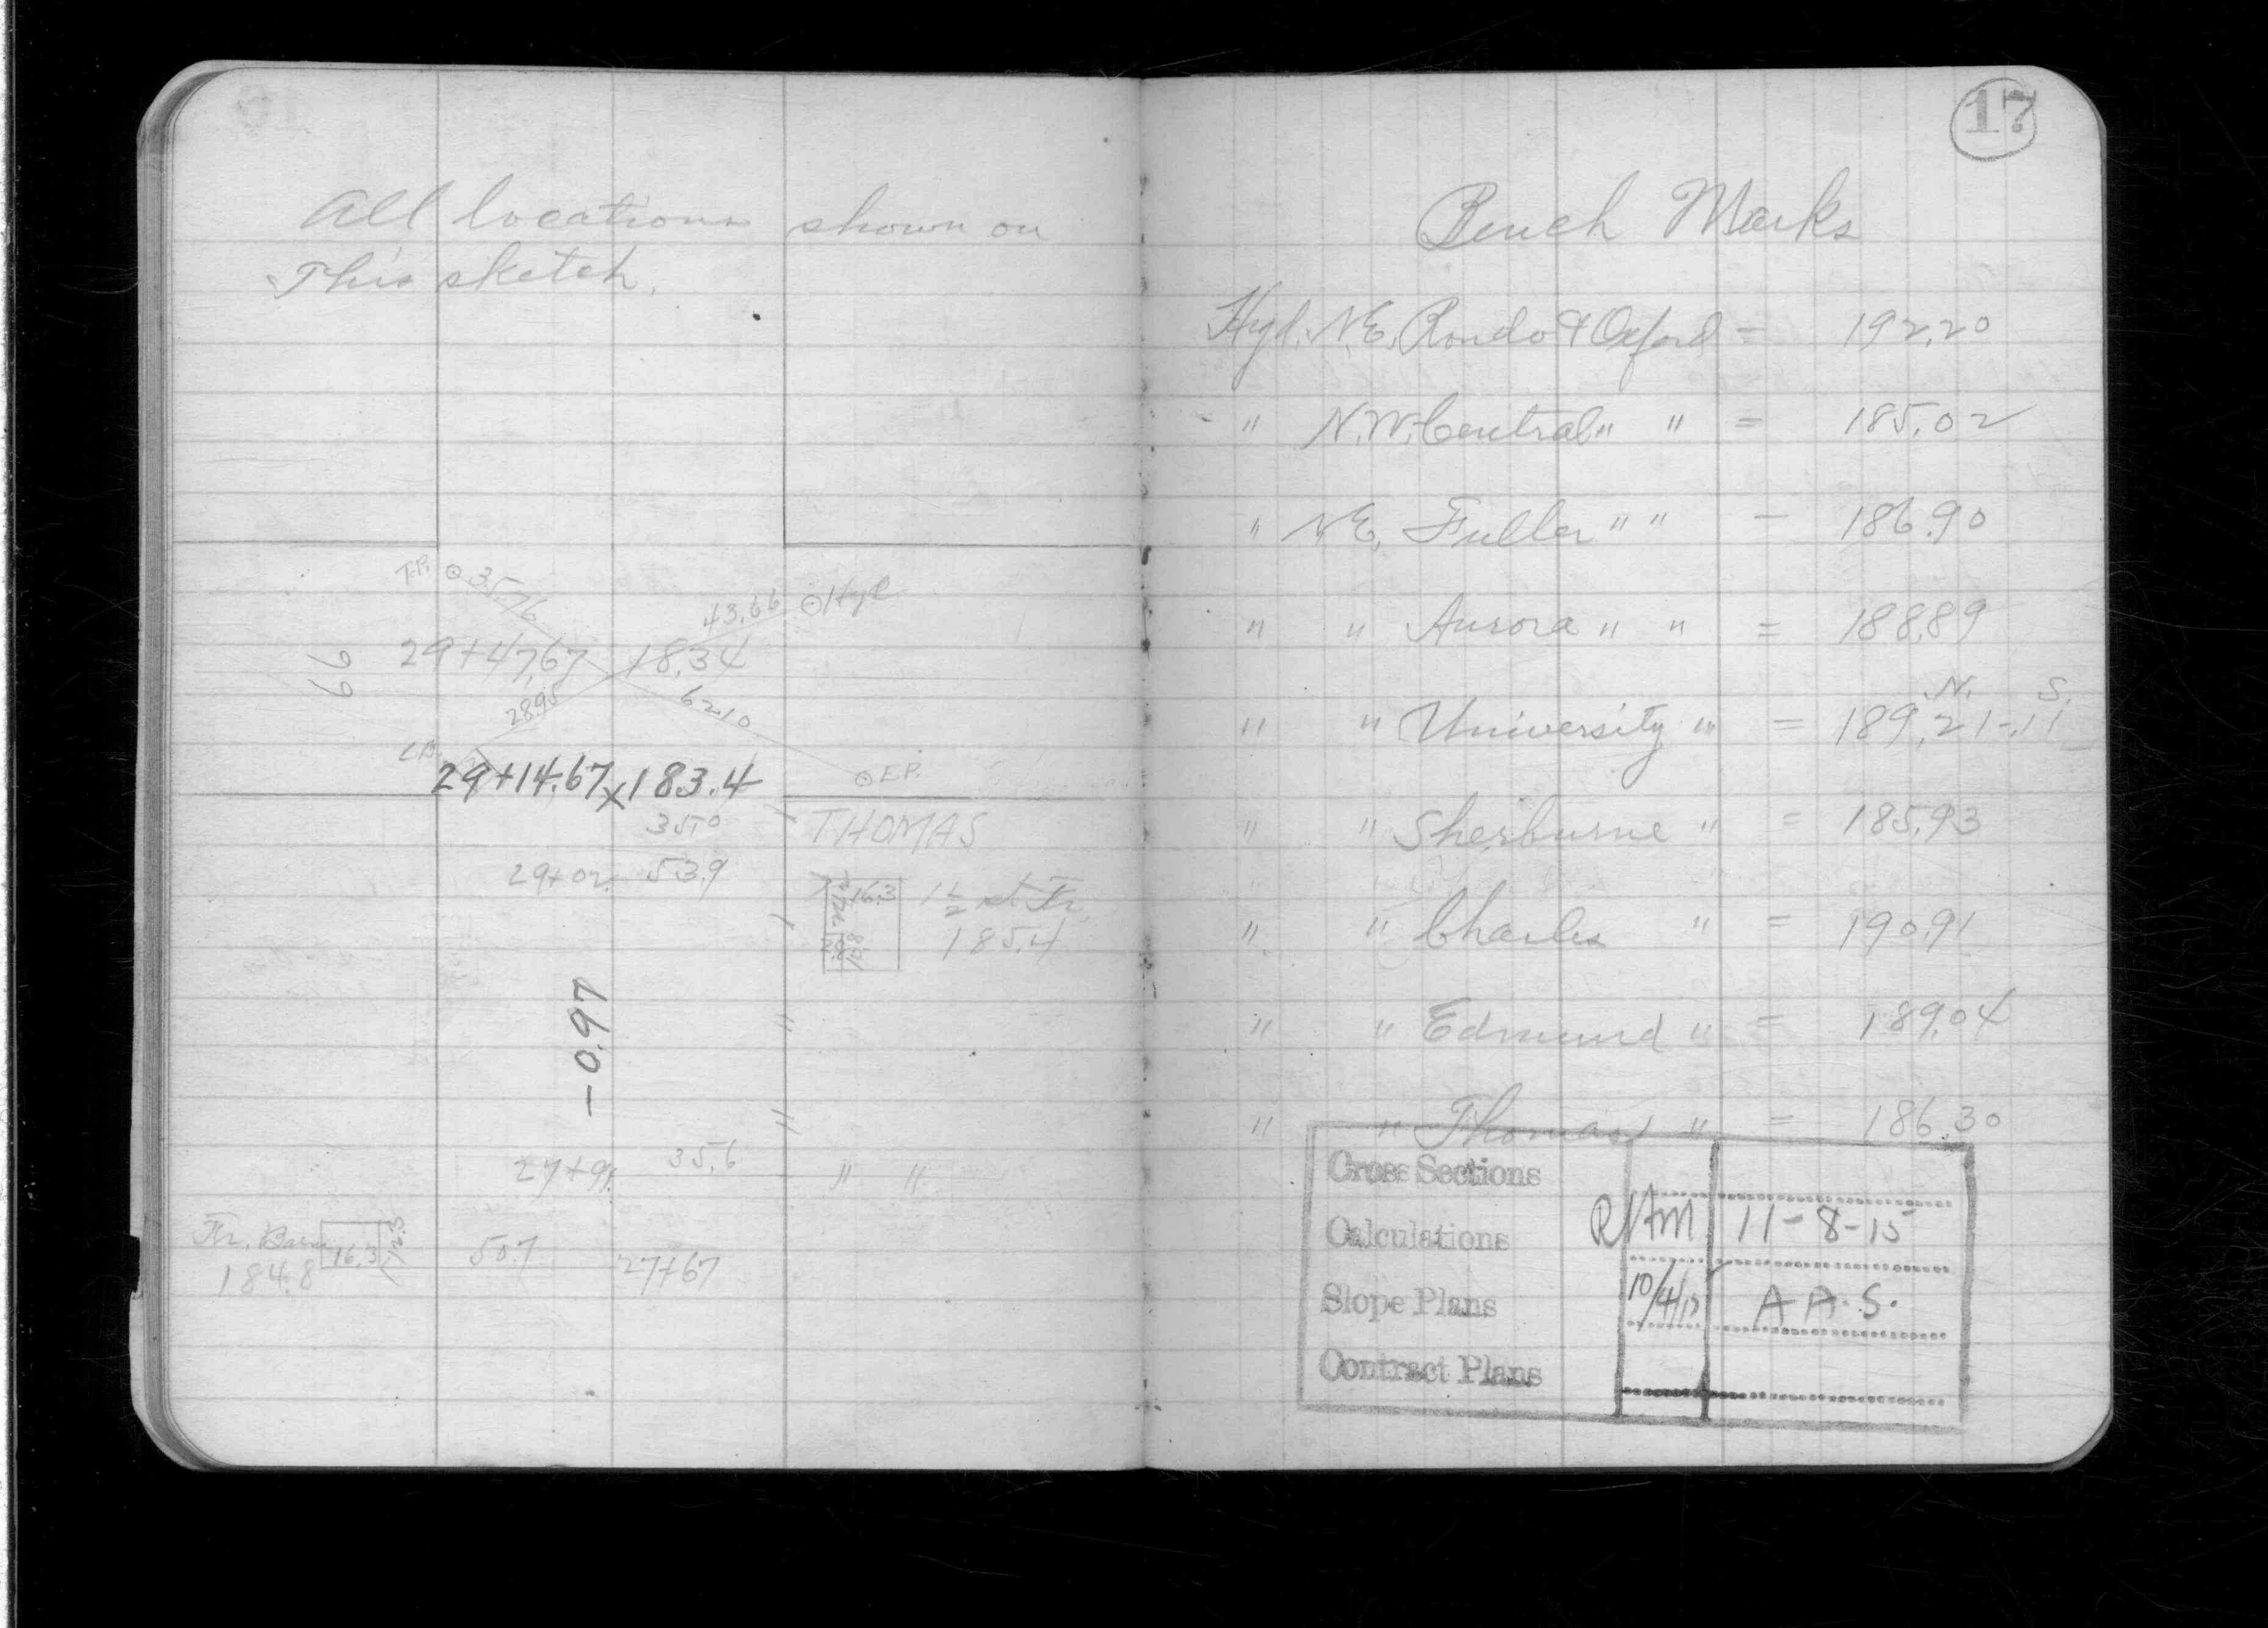 All locations shown on
This sketch.
T.P. 35.76
43.66 Hyd
29+47.67 18.34
66
28.95 62.10
29+14.67 x 183.4
E.P.
35.0
THOMAS
29+02 53.9
16.3 1 1/2 st. Fr.
185.4
-0.97
27+91 35.6 " "
Fr. Barn 16.3 50.7 27+67
184.8
17
Bench Marks
Hyd. N.E. Rondo & Oxford = 192.20
" N.W. Central " " = 185.02
" N.E. Fuller " " = 186.90
" " Aurora " " = 188.89
N. S.
" " University " = 189.21-.11
" " Sherburne " = 185.93
" " Charles " = 190.91
" " Edmund " = 189.04
" " Thomas " = 186.30
Cross Sections
Calculations RAM 11-8-15
Slope Plans 10/4/15 A A.S.
Contract Plans